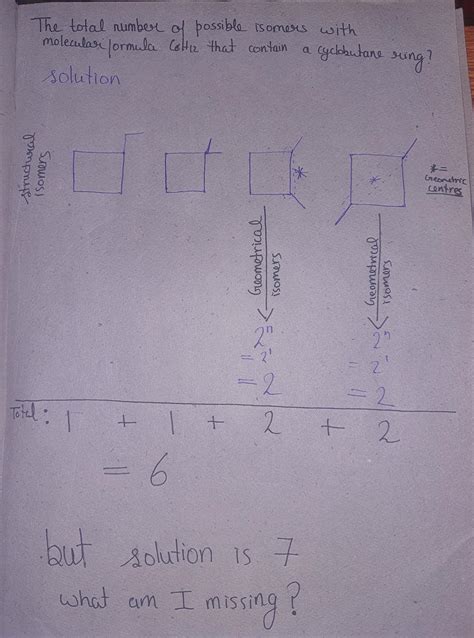 The total number of possible isomers with
molecular formula C6H12 that contain a cyclobutane ring?
solution
structural
isomers
*
*
*=
Geometric
centres
Geometrical
isomers
Geometrical
isomers
2ⁿ
= 2¹
= 2
2ⁿ
= 2¹
= 2
Total: 1 + 1 + 2 + 2
= 6
but solution is 7
what am I missing?